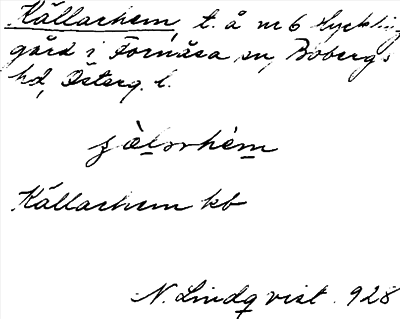 Källarhem, t. å nr 6 Lyckligs
gård i Fornåsa sn, Bobergs
hd, Österg. l.
Källarhem kb
N. Lindqvist. 928